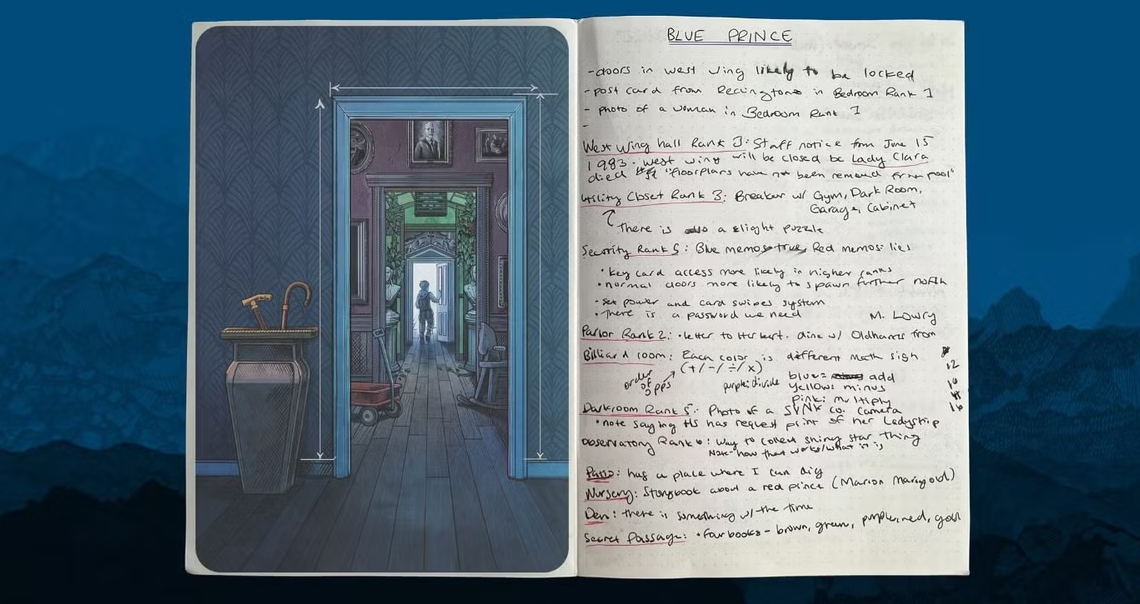 BLUE PRINCE
- doors in west wing likely to be locked
- post card from in Bedroom Rank 1
- photo of a woman in Bedroom Rank 1
-
West Wing hall Rank 3: Staff notice from June 15
1983. West wing will be closed be Lady Clara
died "floorplans have not been removed from pool"
Utility Closet Rank 3: Breaker w/ Gym, Dark Room,
Garage, Cabinet
There is a slight puzzle
Security Rank 5: Blue memos true, Red memos: lies
• key card access more likely in higher ranks
• normal doors more likely to spawn further north
• set power and card swipes system
• There is a password we need
M. Lowry
Parlor Rank 2: • letter to Herbert. dine w/ from
Billiard room: Each color is different math sign
(+/-/÷/x)
order of opps
purple: divide
blue = add
yellow: minus
pink: multiply
12
16
Darkroom Rank 5: Photo of a SVNK co. camera
• note saying HS has request print of her Ladyship
Observatory Rank 6: Way to collect shiny star thing
Note - how that works/what it is
Patio: has a place where I can dig
Nursery: Storybook about a red prince (Marion Marigold)
Den: there is something w/ the time
Secret Passage: • four books - brown, green, purple, red, gold